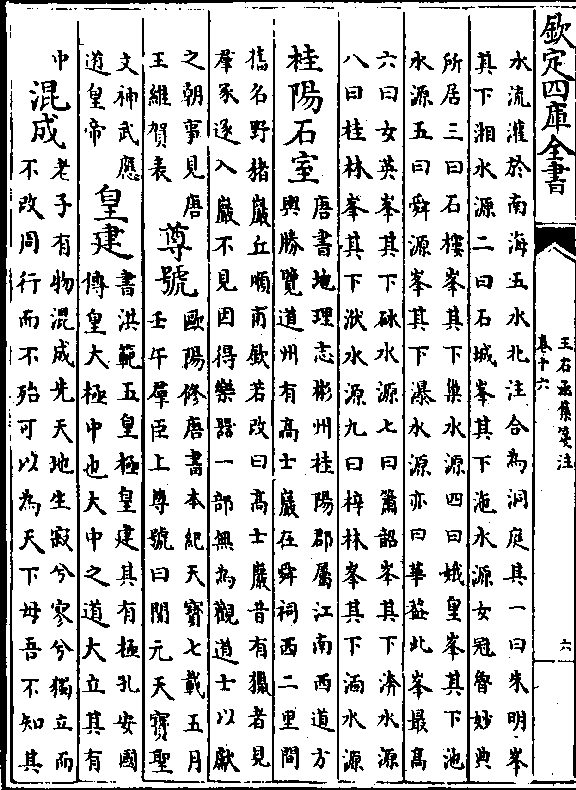 欽定四庫全書
王右丞集箋注
卷十六
六
水流灌於南海五水北注合為洞庭其一曰朱明峯
其下湘水源二曰石城峯其下沲水源女冠魯妙典
所居三曰石樓峯其下巢水源四曰娥皇峯其下池
水源五曰舜源峯其下瀑水源亦曰華葢此峯最高
六曰女英峯其下砅水源七曰簫韶峯其下濟水源
八曰桂林峯其下洑水源九曰梓林峯其下洏水源
桂陽石室
唐書地理志彬州桂陽郡屬江南西道方
輿勝覽道州有高士巖在舜祠西二里間
舊名野猪巖丘順甫欽若改曰高士巖昔有獵者見
羣豕逐入巖不見因得樂器一部無為觀道士以獻
之朝事見唐
王維賀表
尊號
歐陽修唐書本紀天寶七載五月
壬午羣臣上尊號曰開元天寶聖
文神武應
道皇帝
皇建
書洪範五皇極皇建其有極孔安國
傳皇大極中也大中之道大立其有
中
混成
老子有物混成先天地生寂兮寥兮獨立而
不改周行而不殆可以為天下母吾不知其